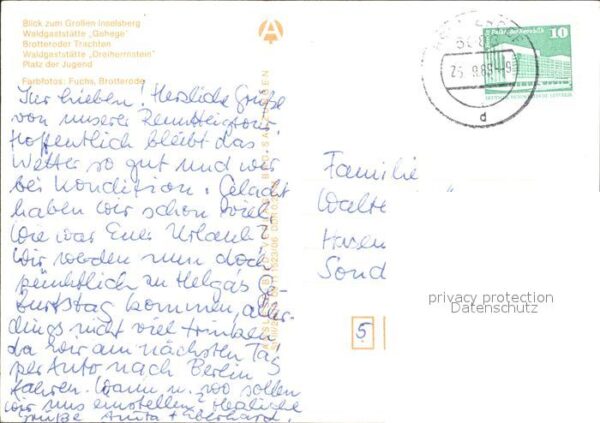 Blick zum Großen Inselsberg
Waldgaststätte „Gehege"
Brotteroder Trachten
Waldgaststätte „Dreiherrnstein"
Platz der Jugend
Farbfotos: Fuchs, Brotterode
Ihr Lieben! Herzliche Grüße
von unserer Rennsteigtour.
Hoffentlich bleibt das
Wetter so gut und wir
bei Kondition. Gelacht
haben wir schon viel.
Wie war Euer Urlaub?
Wir werden nun doch
pünktlich zu Helgas Ge-
burtstag kommen, aller-
dings nicht viel trinken,
da wir am nächsten Tag
per Auto nach Berlin
fahren. Wann u. wo sollen
wir uns einstellen? Herzliche
Grüße Anita + Eberhard.
10
d
Familie
Walte
Sond
privacy protection
Datenschutz
5